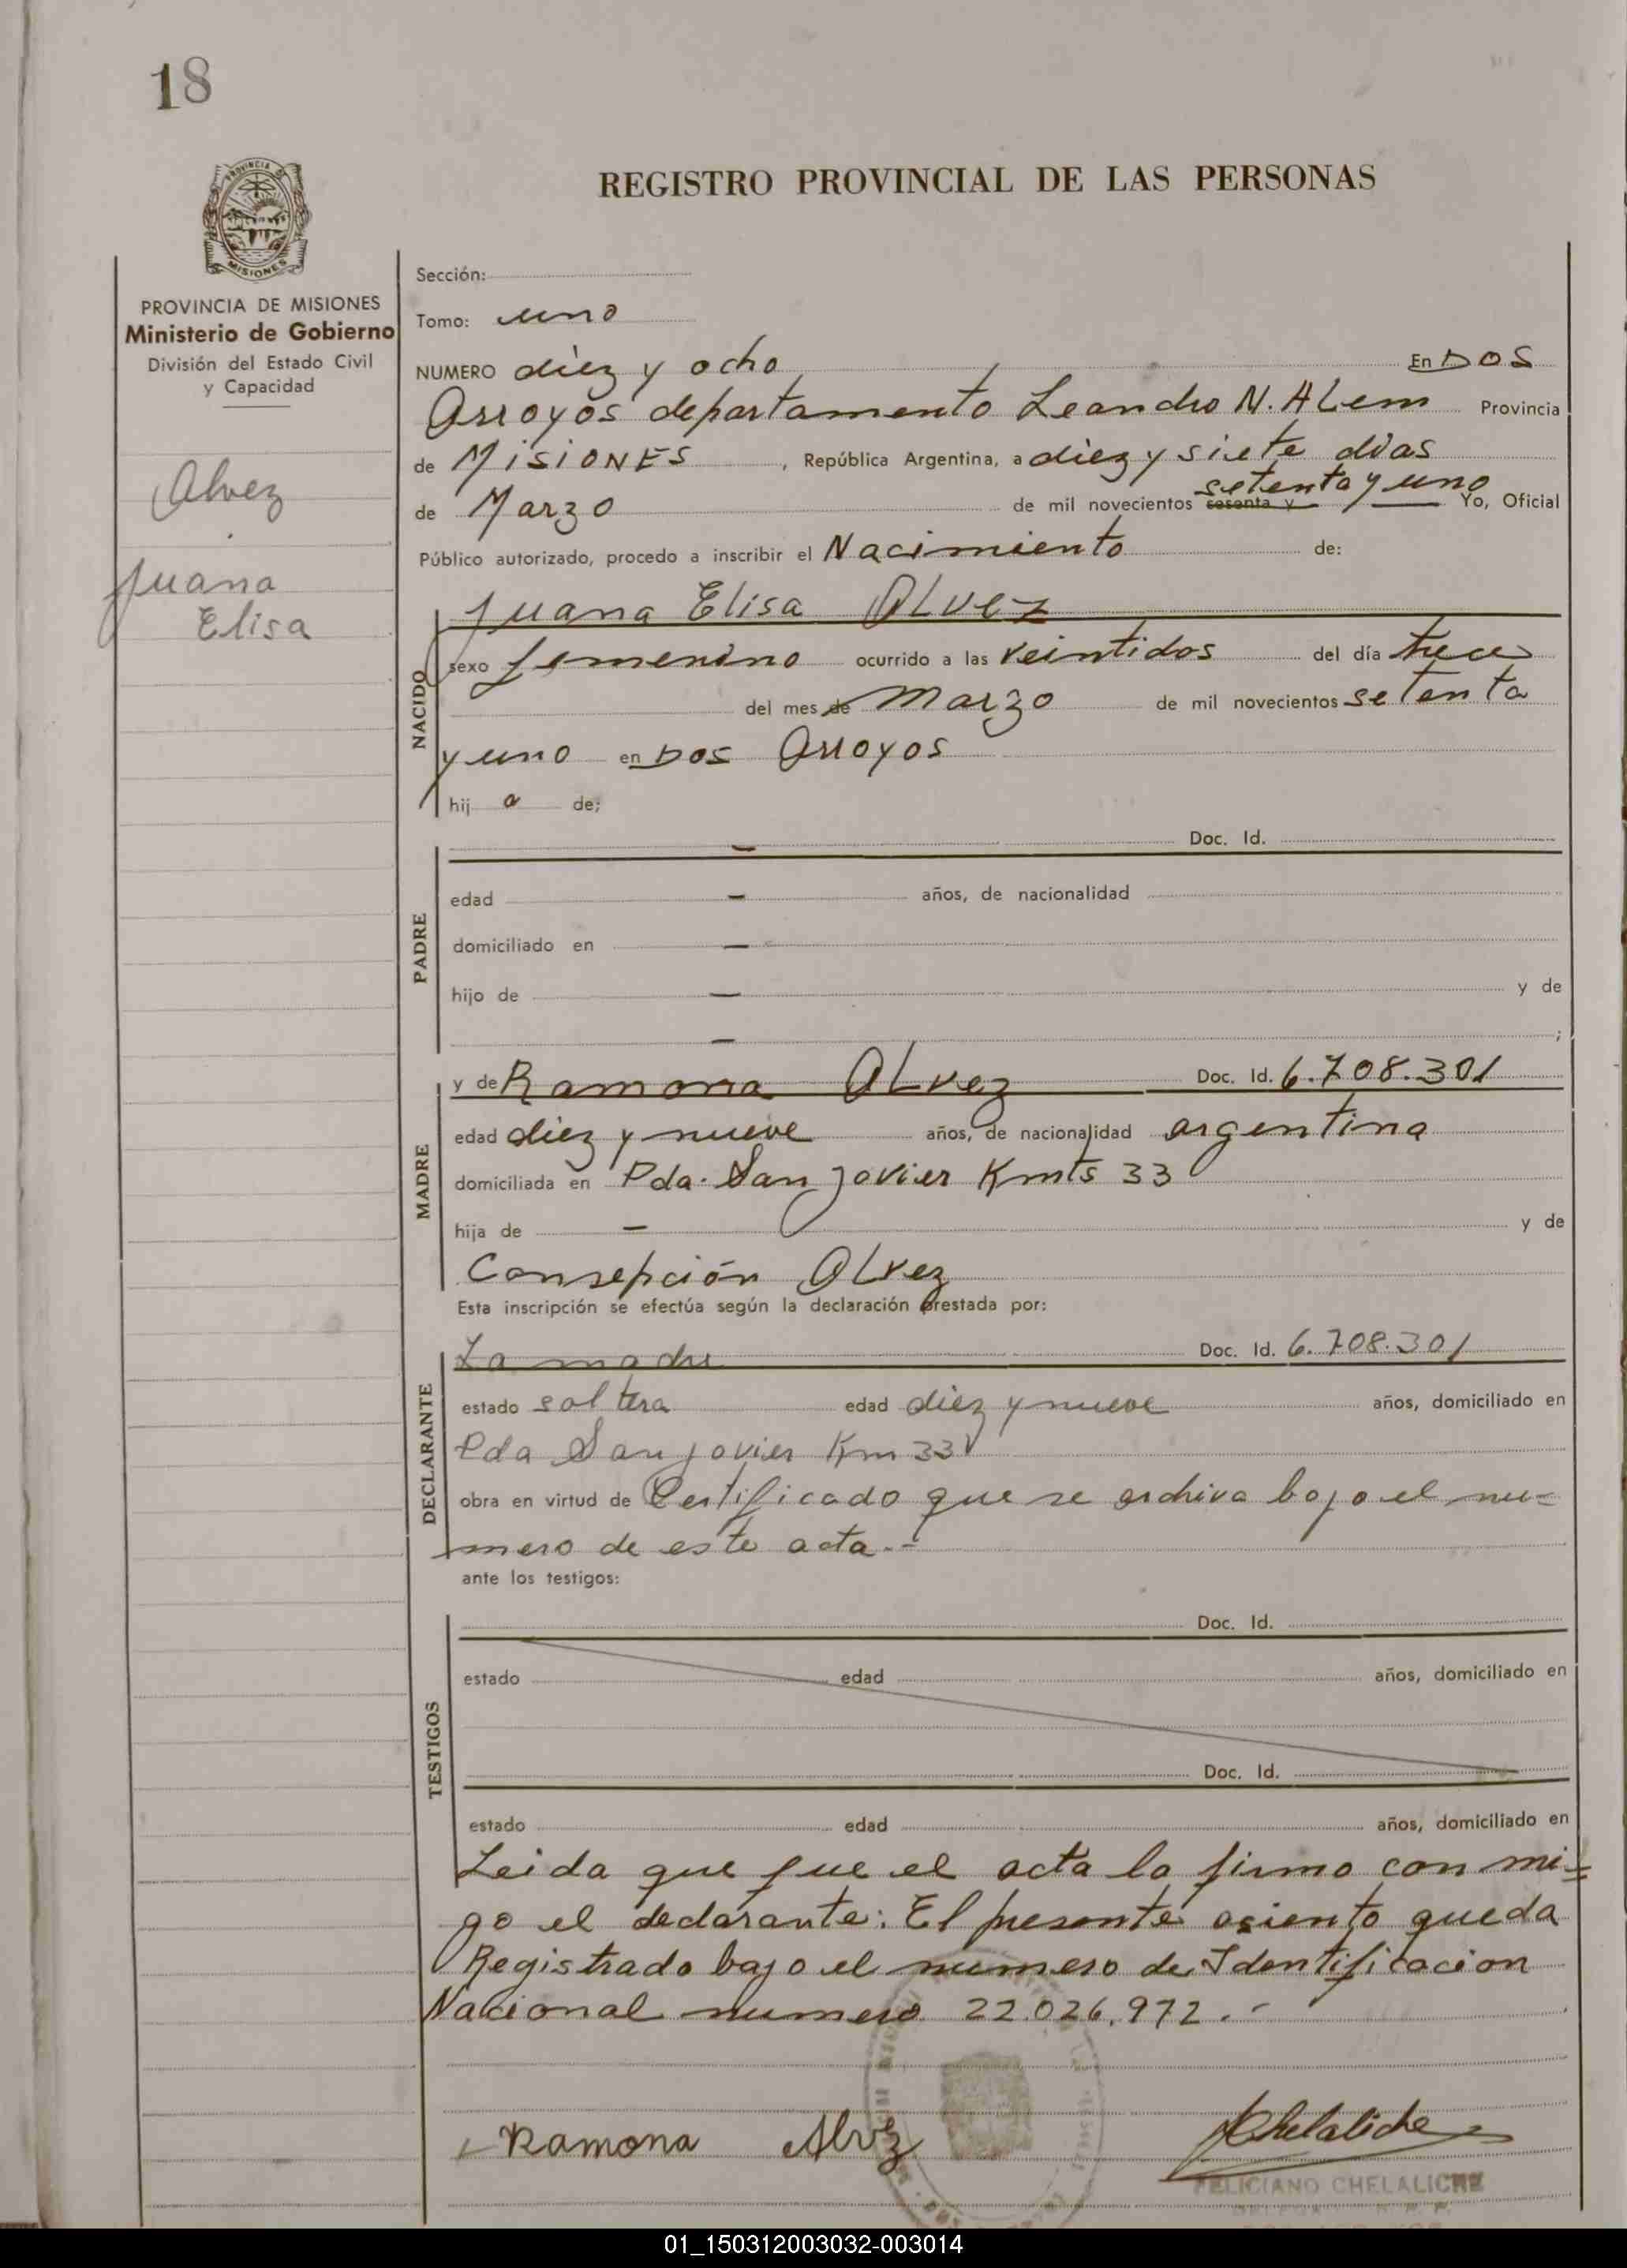 18
PROVINCIA
MISIONES
REGISTRO PROVINCIAL DE LAS PERSONAS
PROVINCIA DE MISIONES
Ministerio de Gobierno
División del Estado Civil
y Capacidad
Alvez
Juana
Elisa
Sección:
Tomo: uno
NUMERO diez y ocho En DOS
Arroyos departamento Leandro N. ALem Provincia
de MISIONES, República Argentina, a diez y siete dias
de Marzo de mil novecientos sesenta y setenta y uno Yo, Oficial
Público autorizado, procedo a inscribir el Nacimiento de:
NACIDO
Juana Elisa ALvez
sexo femenino ocurrido a las veintidos del día trece
del mes de Marzo de mil novecientos setenta
y uno en DOS Arroyos
hij a de;
PADRE
- Doc. Id.
edad - años, de nacionalidad
domiciliado en -
hijo de - y de
- ;
MADRE
y de Ramona ALvez Doc. Id. 6.708.301
edad diez y nueve años, de nacionalidad argentina
domiciliada en Pda. San Javier Kmts 33
hija de - y de
Consepción ALvez
Esta inscripción se efectúa según la declaración prestada por:
DECLARANTE
La madre Doc. Id. 6.708.301
estado soltera edad diez y nueve años, domiciliado en
Pda San Javier Km 33
obra en virtud de Certificado que se archiva bajo el nu=
mero de este acta.-
ante los testigos:
TESTIGOS
Doc. Id.
estado edad años, domiciliado en
Doc. Id.
estado edad años, domiciliado en
Leida que fue el acta la firmo con mi=
go el declarante: El presente asiento queda
Registrado bajo el numero de Identificacion
Nacional numero 22.026.972.-
Ramona Alvez
Chelaliche
FELICIANO CHELALICHE
01_150312003032-003014